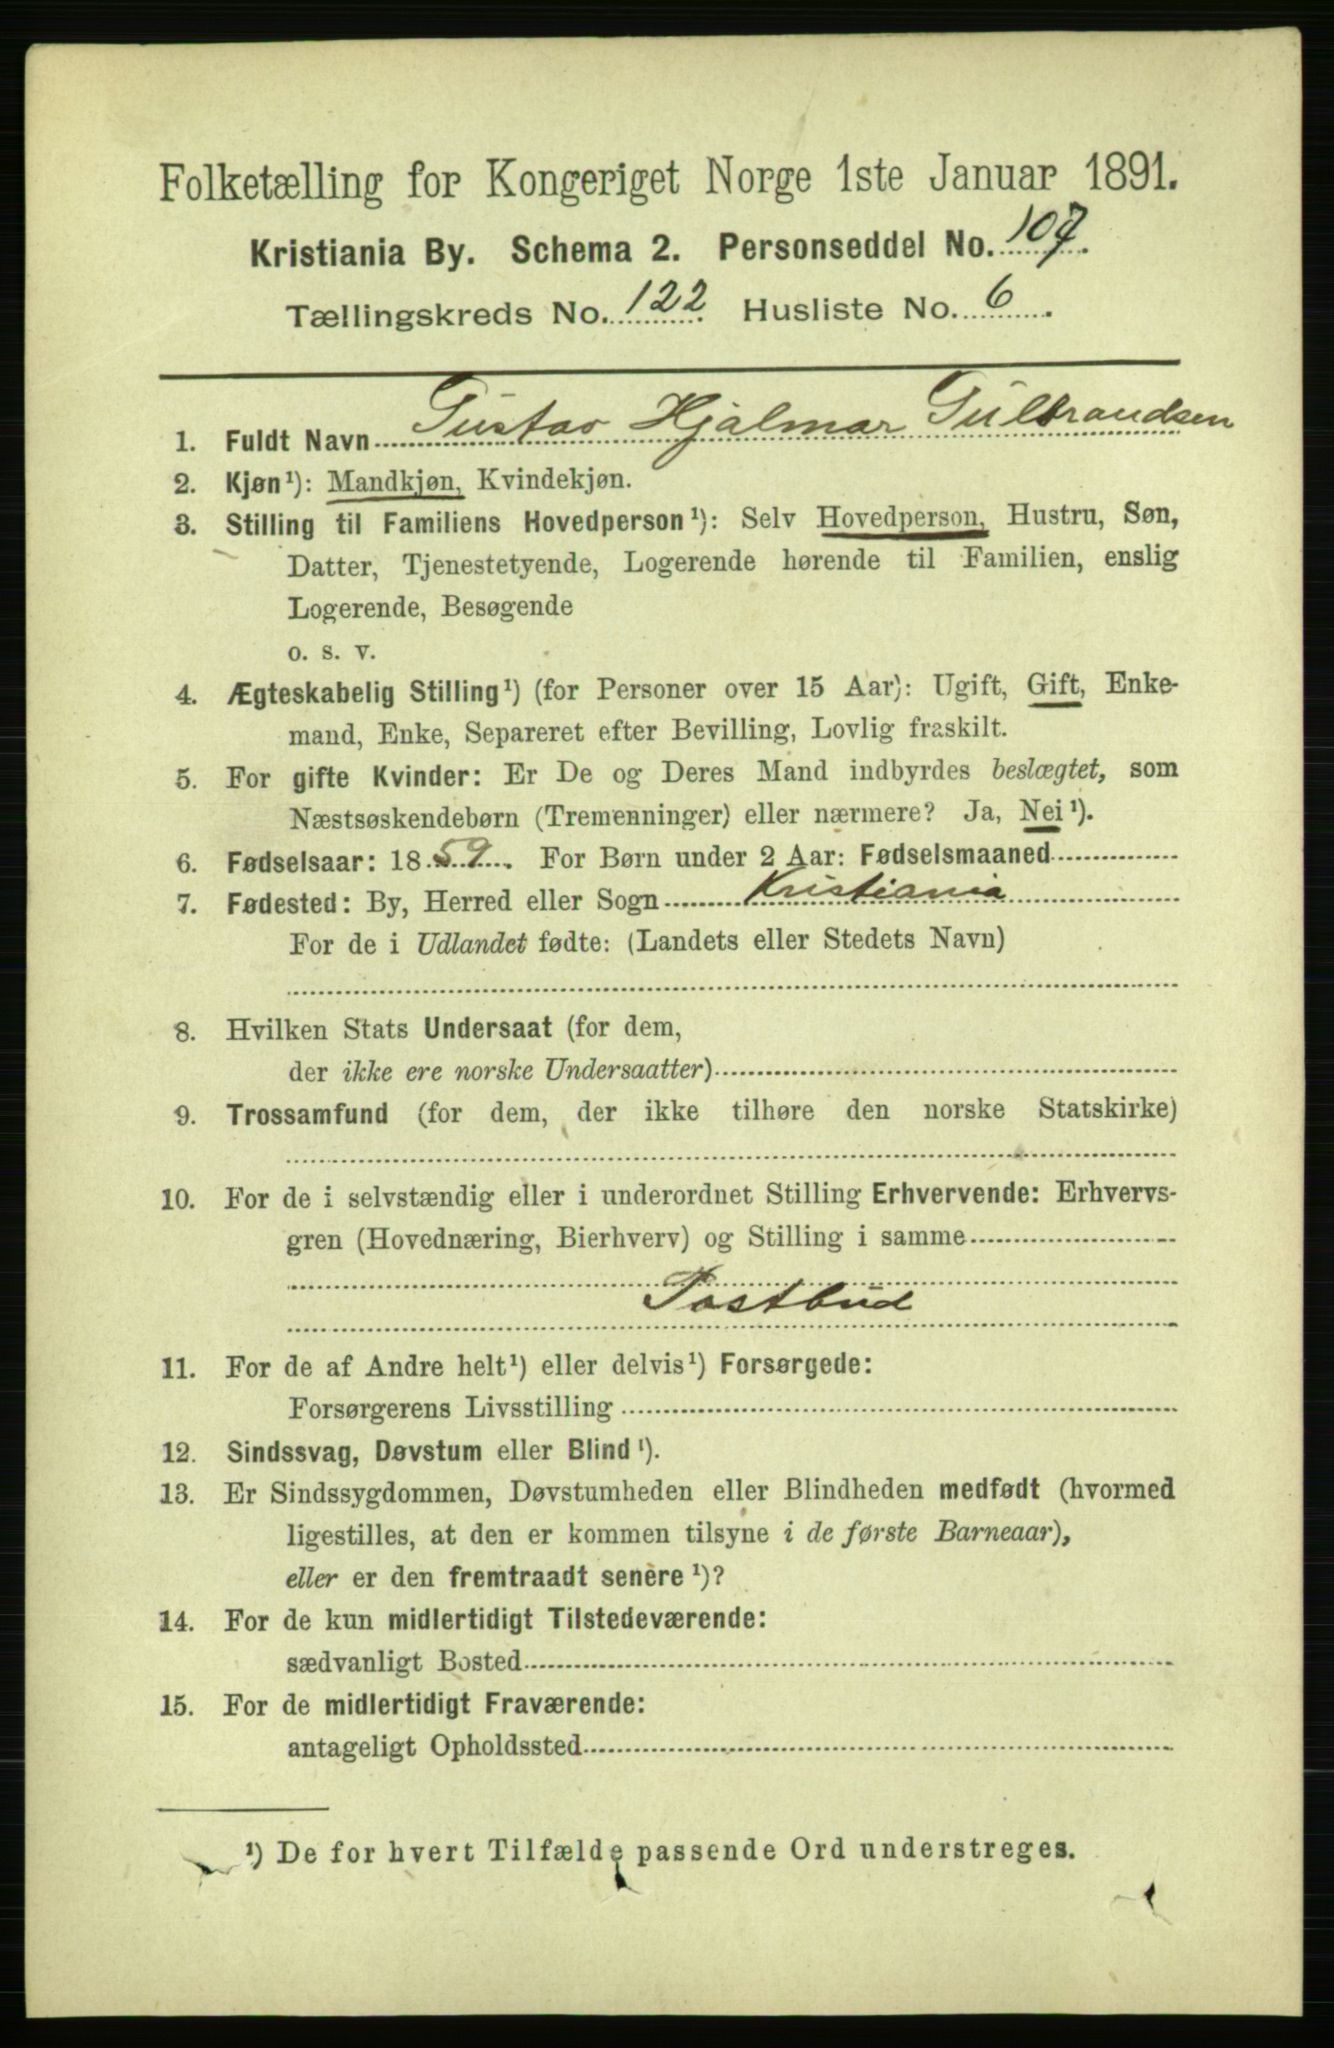 Folketælling for Kongeriget Norge 1ste Januar 1891.
Kristiania By. Schema 2. Personseddel No. 107.
Tællingskreds No. 122 Husliste No. 6.
1. Fuldt Navn Gustav Hjalmar Gulbrandsen
2. Kjøn¹): Mandkjøn, Kvindekjøn.
3. Stilling til Familiens Hovedperson¹): Selv Hovedperson, Hustru, Søn,
Datter, Tjenestetyende, Logerende hørende til Familien, enslig
Logerende, Besøgende
o. s. v.
4. Ægteskabelig Stilling¹) (for Personer over 15 Aar): Ugift, Gift, Enke-
mand, Enke, Separeret efter Bevilling, Lovlig fraskilt.
5. For gifte Kvinder: Er De og Deres Mand indbyrdes beslægtet, som
Næstsøskendebørn (Tremenninger) eller nærmere? Ja, Nei¹).
6. Fødselsaar: 1859. For Børn under 2 Aar: Fødselsmaaned
7. Fødested: By, Herred eller Sogn Kristiania
For de i Udlandet fødte: (Landets eller Stedets Navn)
8. Hvilken Stats Undersaat (for dem,
der ikke ere norske Undersaatter)
9. Trossamfund (for dem, der ikke tilhøre den norske Statskirke)
10. For de i selvstændig eller i underordnet Stilling Erhvervende: Erhvervs-
gren (Hovednæring, Bierhverv) og Stilling i samme
Postbud
11. For de af Andre helt¹) eller delvis¹) Forsørgede:
Forsørgerens Livsstilling
12. Sindssvag, Døvstum eller Blind¹).
13. Er Sindssygdommen, Døvstumheden eller Blindheden medfødt (hvormed
ligestilles, at den er kommen tilsyne i de første Barneaar),
eller er den fremtraadt senere¹)?
14. For de kun midlertidigt Tilstedeværende:
sædvanligt Bosted
15. For de midlertidigt Fraværende:
antageligt Opholdssted
¹) De for hvert Tilfælde passende Ord understreges.